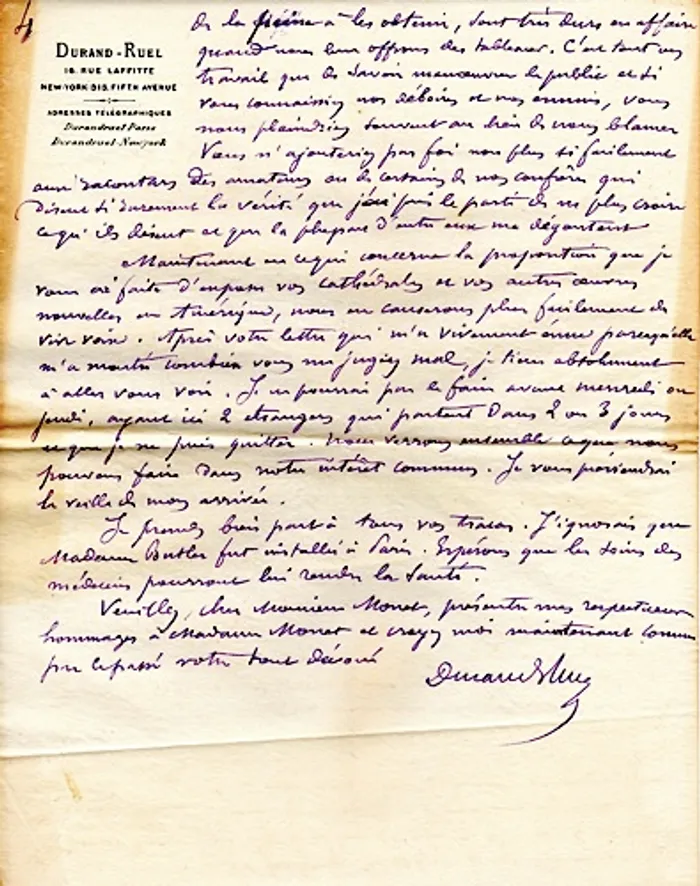 4
DURAND-RUEL
16, RUE LAFFITTE
NEW-YORK 315, FIFTH AVENUE
ADRESSES TÉLÉGRAPHIQUES
Durandruel-Paris
Durandruel-Newyork
de la à les obtenir, sont très durs en affaire
quand nous leur offrons des tableaux. C'est tout un
travail que de savoir manœuvrer le public et si
vous connaissiez nos déboires et nos ennuis, vous
nous plaindriez souvent au lieu de nous blamer
Vous n'ajouteriez pas foi non plus si facilement
aux racontars des amateurs ou de certains de nos confrères qui
disent si rarement la vérité que j'ai pris le parti de ne plus croire
ce qu'ils disent et que la plupart d'entre eux me dégoutent
Maintenant en ce qui concerne la proposition que je
vous ai faite d'exposer vos Cathédrales et vos autres œuvres
nouvelles en Amérique, nous en causerons plus facilement de
vive voix. Après votre lettre qui m'a vivement ému parcequ'elle
m'a montré combien vous me jugiez mal, je tiens absolument
à aller vous voir. Je ne pourrai pas le faire avant mercredi ou
jeudi, ayant ici 2 étrangers qui partent dans 2 ou 3 jours
et que je ne puis quitter. Nous verrons ensemble ce que nous
pouvons faire dans notre intérêt commun. Je vous préviendrai
la veille de mon arrivée.
Je prends bien part à tous vos tracas. J'ignorais que
Madame Butler fut installée à Paris. Espérons que les soins des
médecins pourront lui rendre la santé.
Veuillez, cher Monsieur Monet, présenter mes respectueux
hommages à Madame Monet et croyez moi maintenant comme
par le passé votre tout dévoué
Durand Ruel